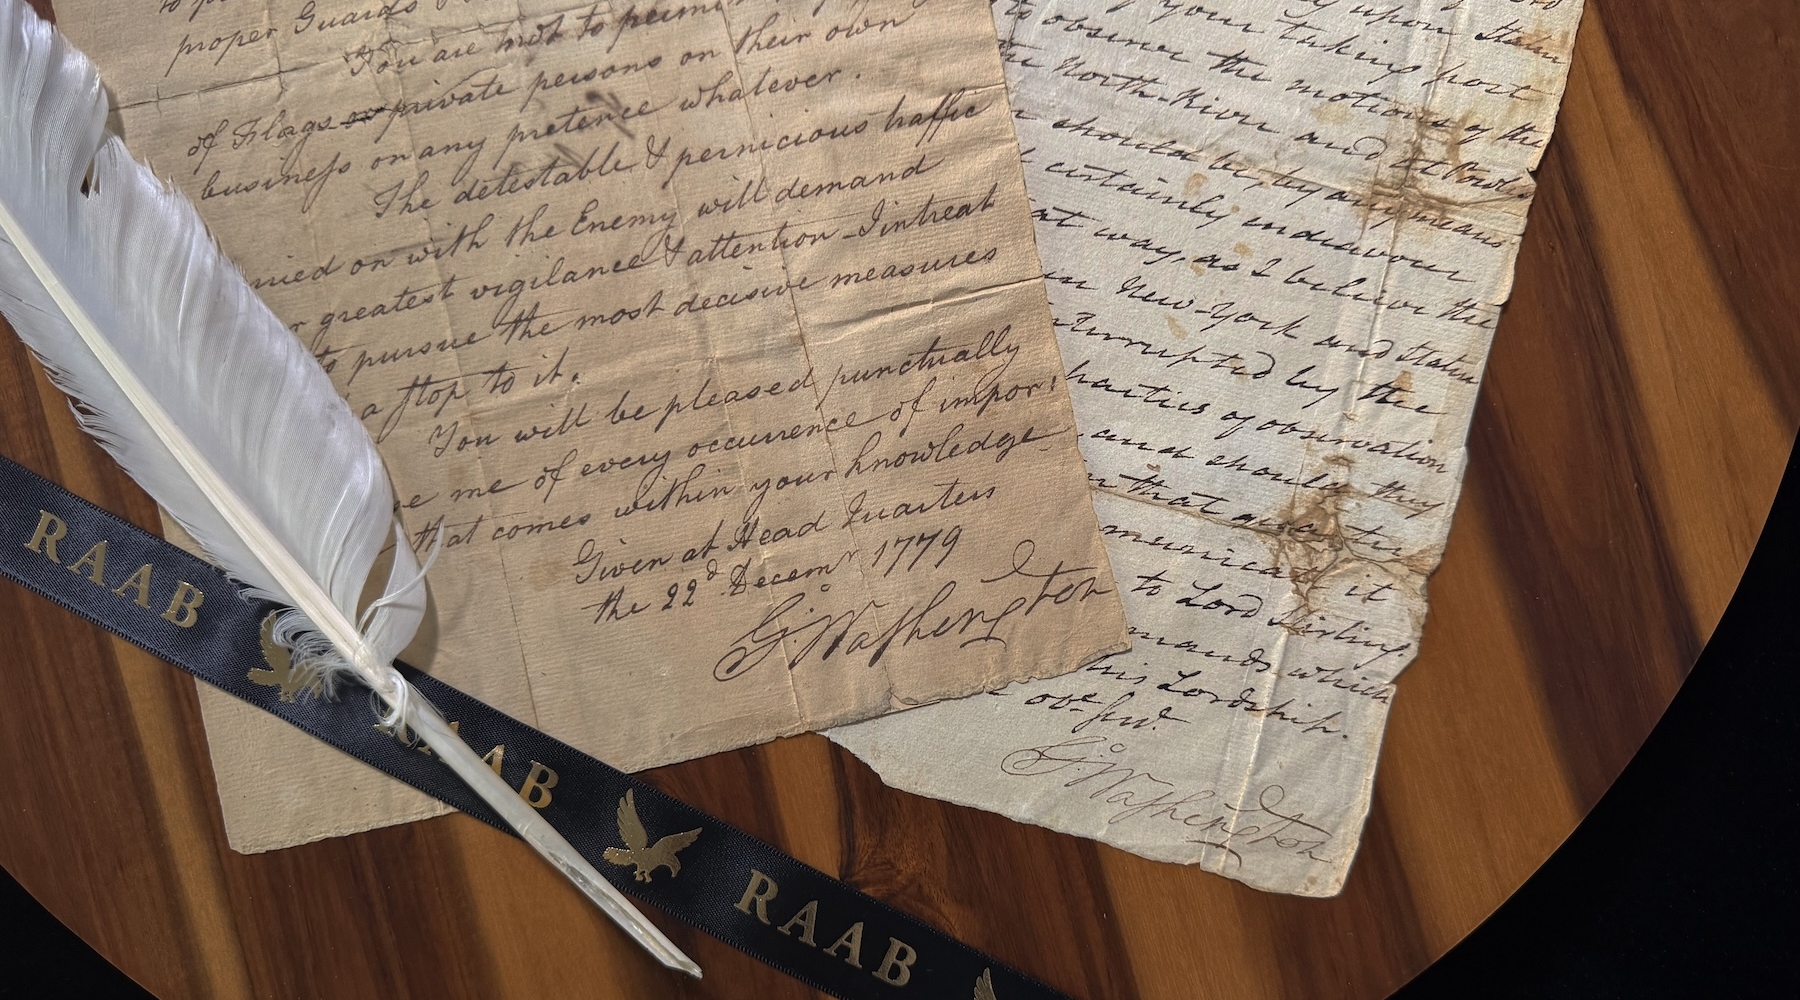 proper Guards
You are not to permit
of Flags or private persons on their own
business on any pretence whatever.
The detestable & pernicious traffic
ried on with the Enemy will demand
r greatest vigilance & attention - I intreat
to pursue the most decisive measures
a stop to it.
You will be pleased punctually
me of every occurrence of impor
that comes within your knowledge
Given at Head Quarters
the 22d Decemr 1779
Go: Washington
upon Staten
your taking post
to observe the motions of the
the North-River and at Powles
should be, by any means
certainly endeavour
at way, as I believe the
New-York and Staten
nterrupted by the
parties of observation
and should they
that
municate it
to Lord Stirling
mands which
his Lordship.
obt Servt
Go: Washington
RAAB
RAAB
RAAB